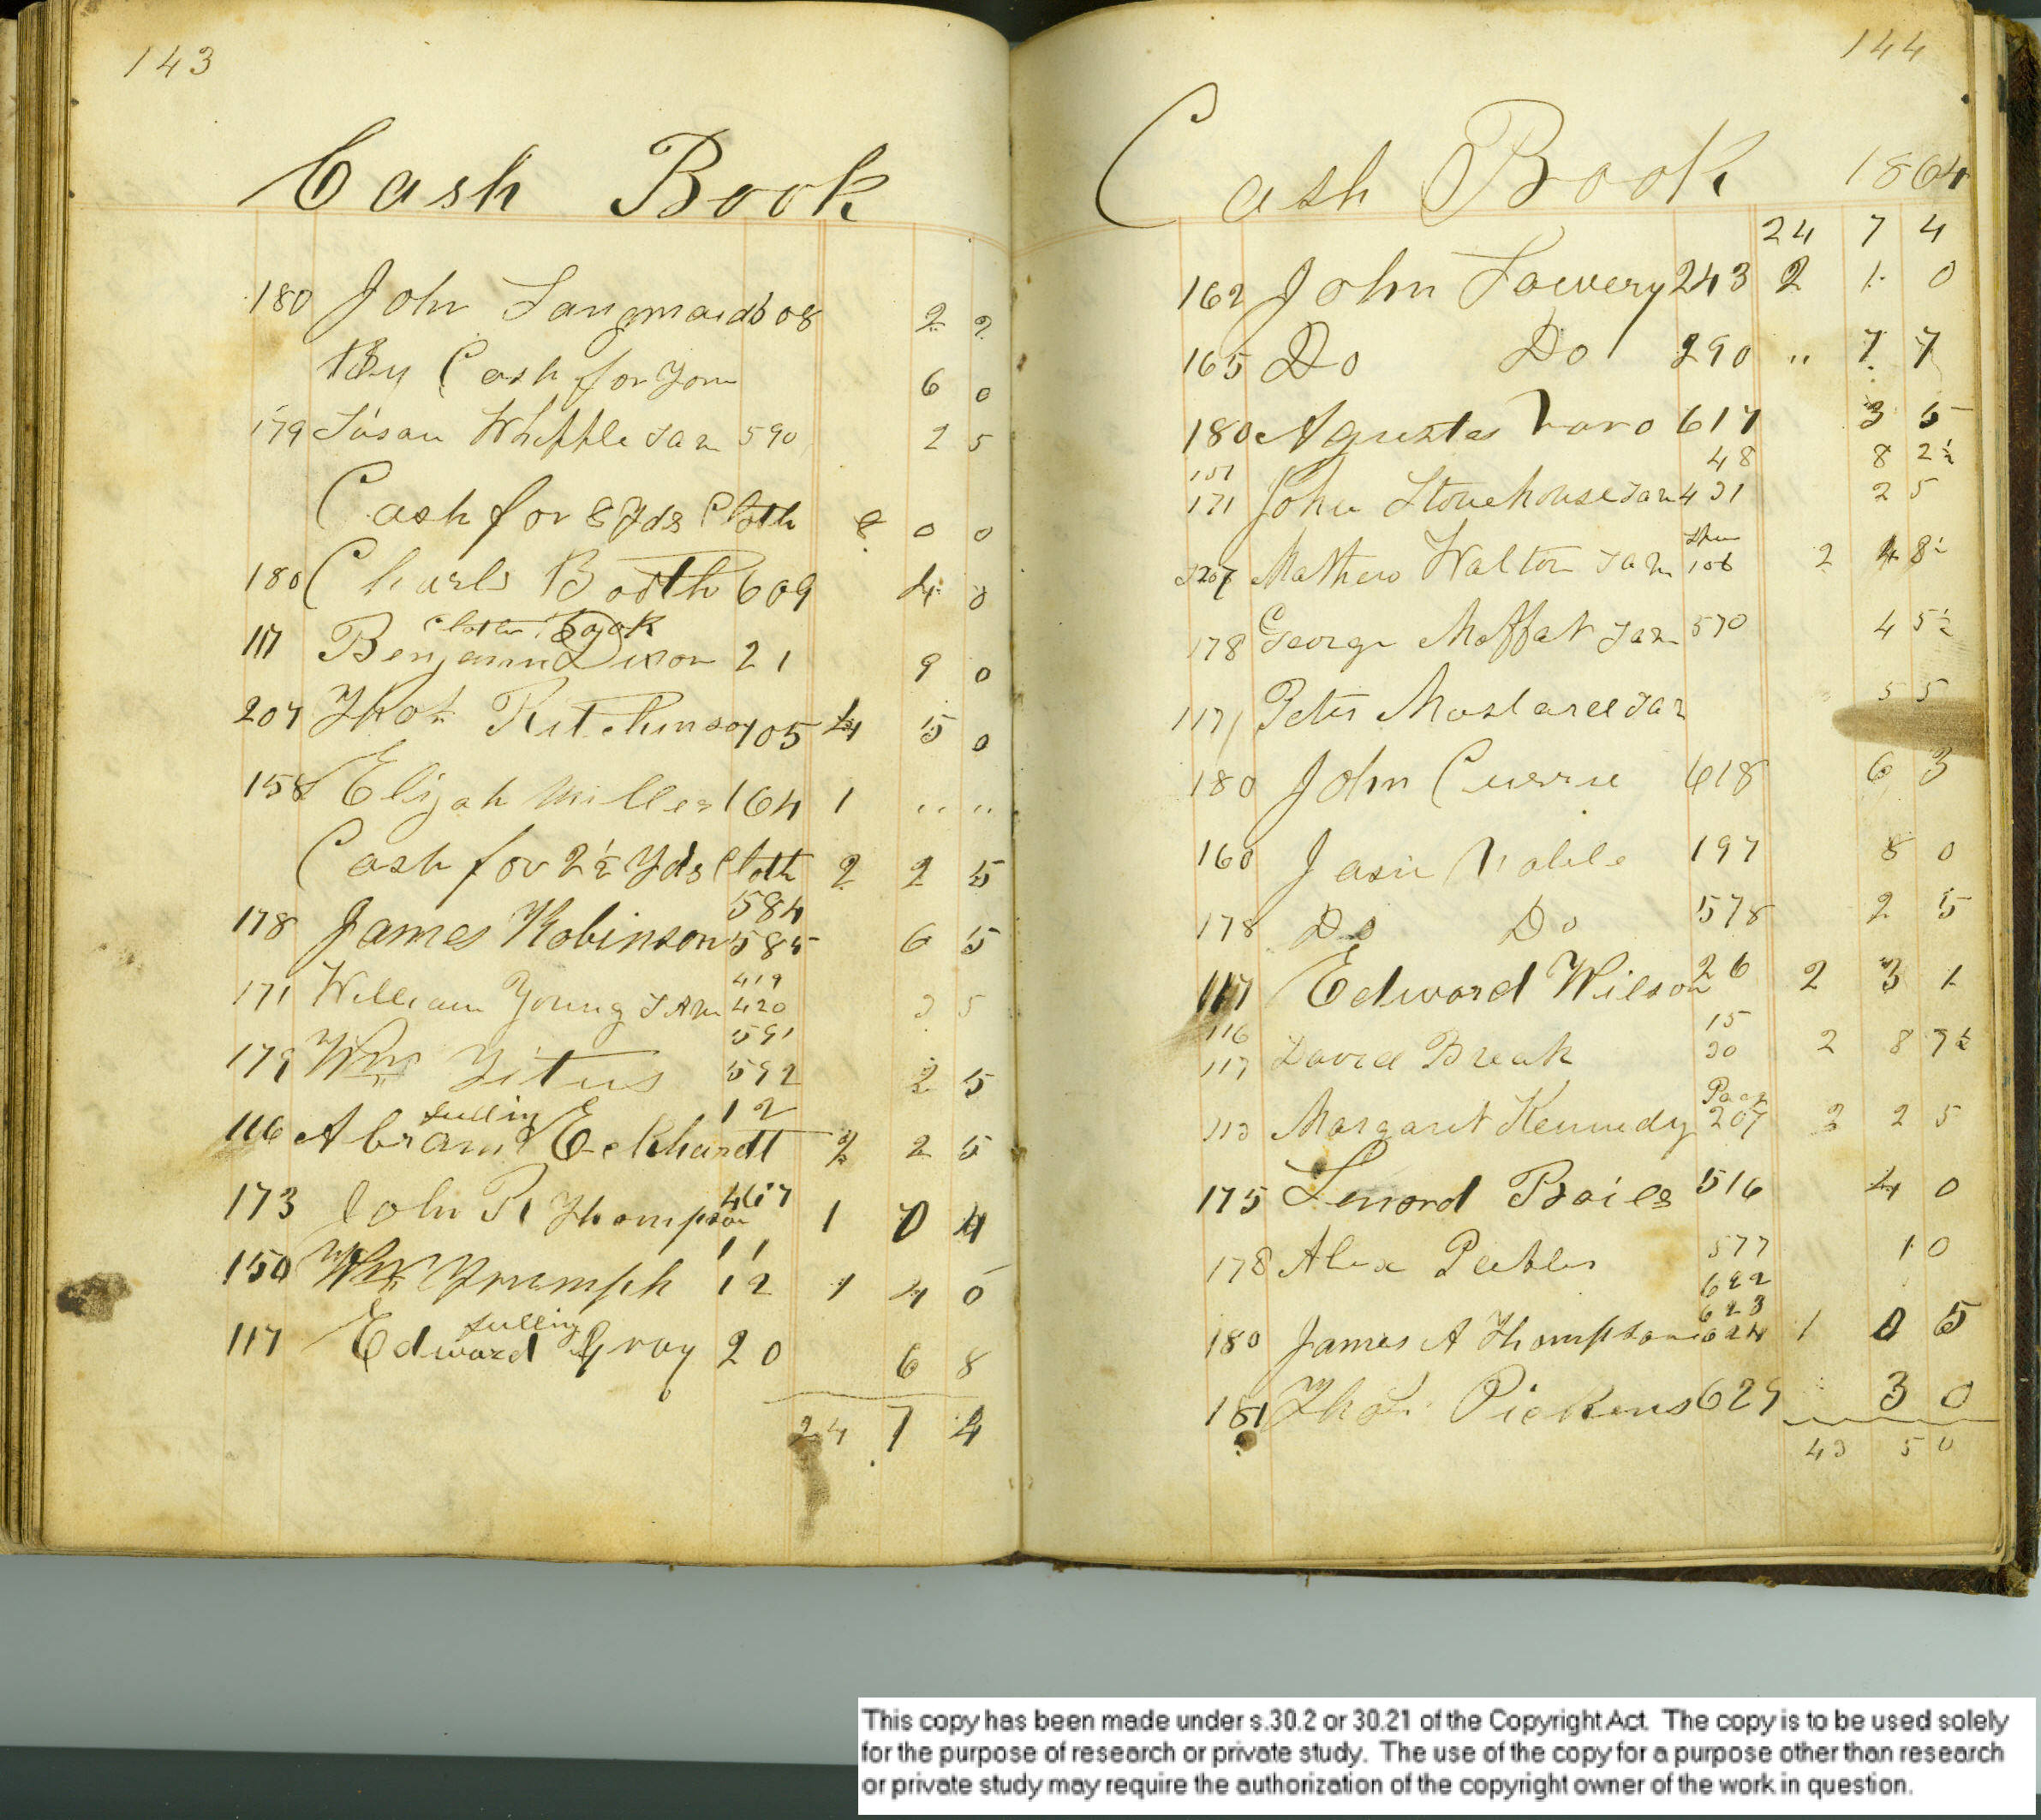 143
Cash Book
180 John Langmaid 608 2 2
By Cash for Yarn 6 0
179 Susan Whipple Jan 590 2 5
Cash for 8 Yds Cloth 8 0 0
180 Charls Booth 609 4 0
Cloth Book
117 Benjamin Dixon 21 9 0
207 Thos Ritchinson 105 4 5 0
158 Elijah Miller 164 1 " "
Cash for 2½ Yds Cloth 2 2 5
584
178 James Robinson 585 6 5
419
171 William Young 420 3 5
591
179 Wm Titus 592 2 5
fulling 12
116 Abram Eckhardt 2 2 5
173 John R Thompson 467 1 0 4
11
150 Wm Trumph 12 1 4 0
fulling
117 Edward Gray 20 6 8
24 7 4
144
Cash Book 1864
24 7 4
162 John Lowery 243 2 1 0
165 Do Do 290 " 7 7
180 Agustas 617 3 5
157 48 8 2½
171 John Stonehouse 431 2 5
Mathew Walton 106 2 4 8½
178 George Moffat 570 4 5½
117 Peter 5 5
180 John Currie 618 6 3
160 Noble 197 8 0
178 Do Do 578 2 5
117 Edward Wilson 26 2 3 1
116 15
117 David Break 30 2 8 7½
113 Margaret Kennedy 207 2 2 5
175 Lenord Boies 516 4 0
178 Alex Peebles 577 1 0
622
623
180 James A Thompson 624 1 0 5
181 Thos Pickens 629 3 0
43 5 0
This copy has been made under s.30.2 or 30.21 of the Copyright Act. The copy is to be used solely
for the purpose of research or private study. The use of the copy for a purpose other than research
or private study may require the authorization of the copyright owner of the work in question.